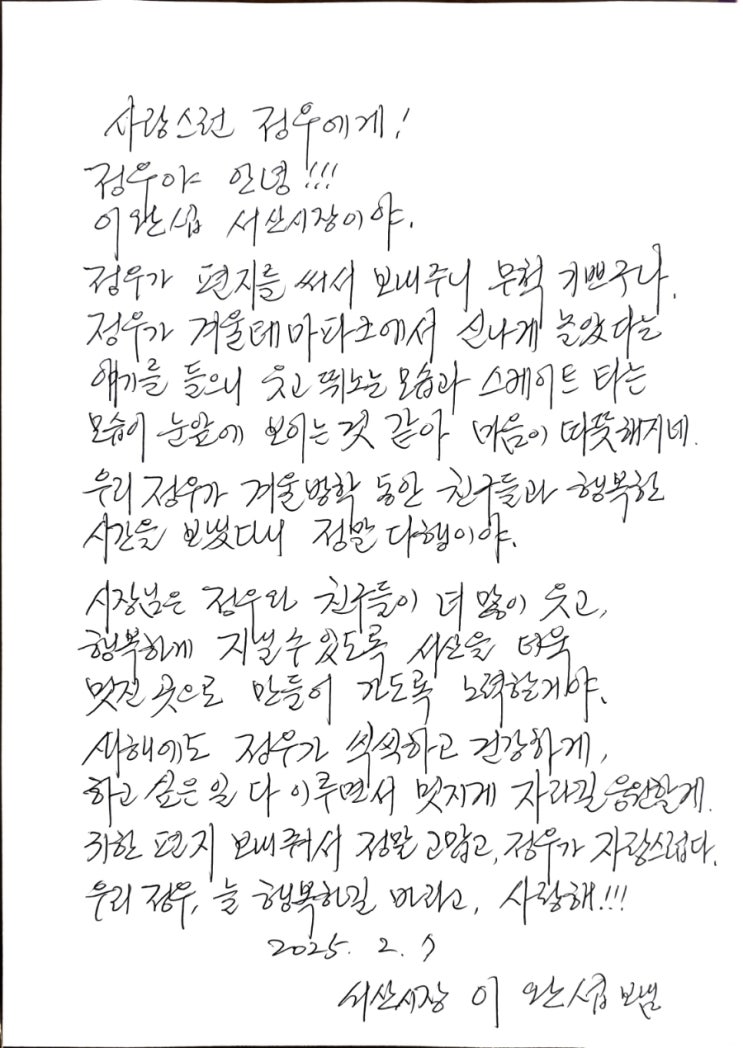 사랑스런 정우에게!
정우야 안녕!!!
이완섭 서산시장이야.
정우가 편지를 써서 보내주니 무척 기쁘구나.
정우가 겨울테마파크에서 신나게 놀았다는
얘기를 들으니 웃고 뛰노는 모습과 스케이트 타는
모습이 눈앞에 보이는것 같아 마음이 따뜻해지네.
우리 정우가 겨울방학 동안 친구들과 행복한
시간을 보냈다니 정말 다행이야.
시장님은 정우와 친구들이 더 많이 웃고,
행복하게 지낼수 있도록 서산을 더욱
멋진 곳으로 만들어 가도록 노력할게야.
새해에도 정우가 씩씩하고 건강하게,
하고 싶은 일 다 이루면서 멋지게 자라길 응원할게.
귀한 편지 보내줘서 정말 고맙고, 정우가 자랑스럽다.
우리 정우, 늘 행복하길 바라고, 사랑해!!!
2025. 2. 7
서산시장 이완섭 보냄